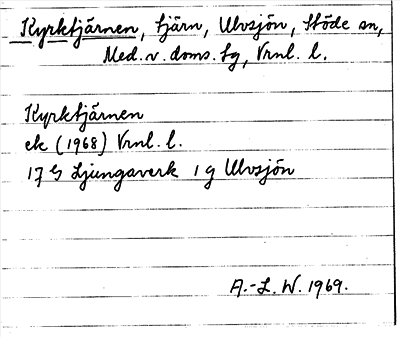 Kyrktjärnen, tjärn, Ulvsjön, Stöde sn,
Med. v. doms. tg, Vrnl. l.
Kyrktjärnen
ek (1968) Vrnl. l.
17 G Ljungaverk 1 g Ulvsjön
A.-L. W. 1969.